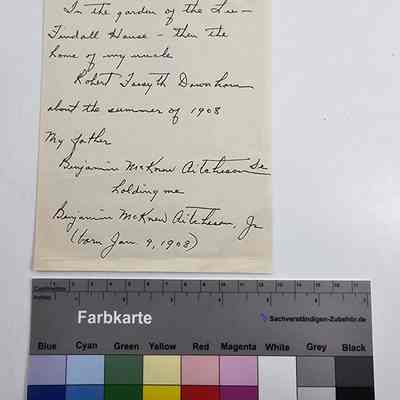 In the garden of the Lee-
Tindall House - then the
home of my uncle
Robert Forsyth Downham
about the summer of 1908
My father
Benjamin McKnew Aitcheson Sr
holding me
Benjamin McKnew Aitcheson, Jr
(born Jan. 9, 1908)
Centimetres
Inches
Farbkarte
Sachverständigen-Zubehör.de
Blue Cyan Green Yellow Red Magenta White Grey Black